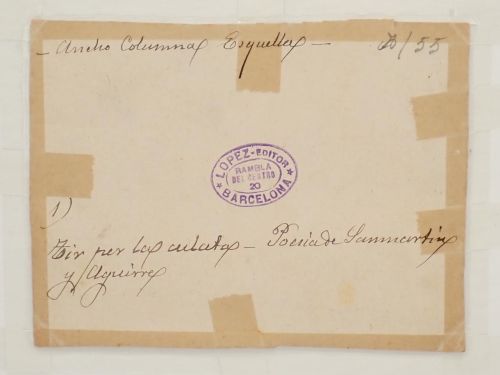 - Ancho Columnas Esquella -
B/55
LOPEZ-EDITOR
RAMBLA
DEL CENTRO
20
BARCELONA
1)
Tir per las culatas - Poesia de Sanmartin
y Aguirre